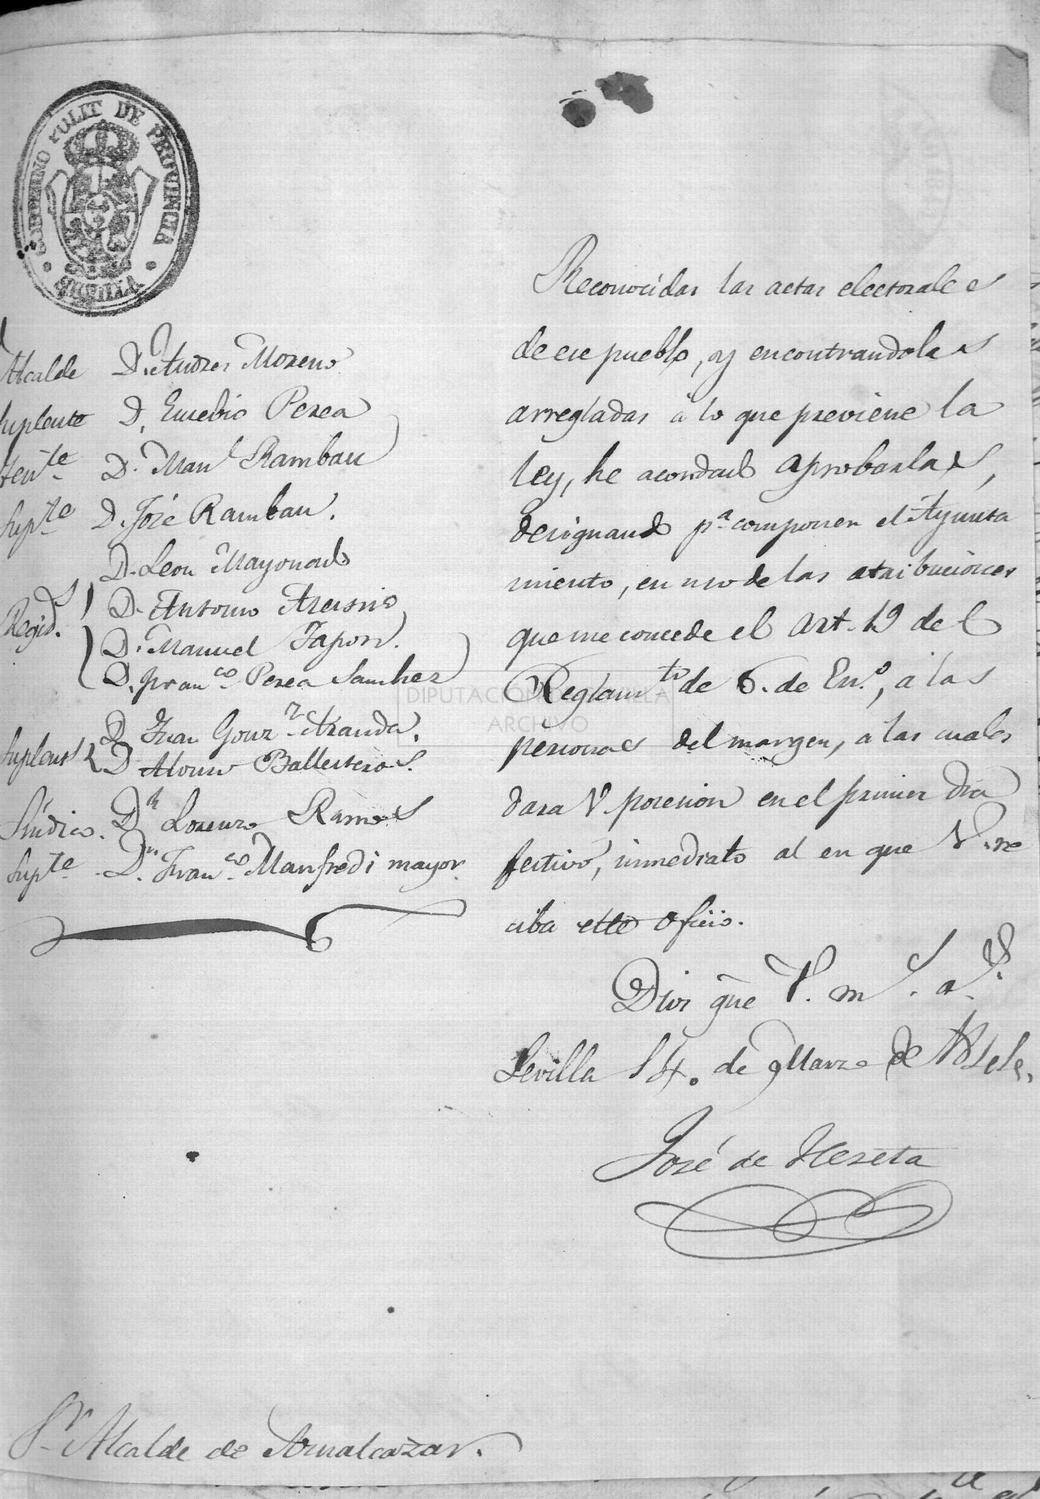 GOBIERNO POLIT DE PROVINCIA
SEVILLA
Alcalde D. Andres Moreno
Suplente D. Eusebio Perea
Tente D. Manl Rambau
Supte D. José Rambau.
D. Leon Mayonado
Regids. D. Antonio
D. Manuel Japon.
D. Franco Perea Sanchez
D. Juan Gonz Aranda.
Suplents D. Alonso Ballesteros.
Síndico. Dn Lorenzo Ramos
Supte Dn. Franco Manfredi mayor.
Reconocidas las actas electorales
de ese pueblo, y encontrandolas
arregladas á lo que previene la
ley, he acordado aprobarlas,
designando pa componer el Ayunta
miento, en uso de las atribuciones
que me concede el Art. 19 del
Reglamto de 6. de En.o, á las
personas del margen, á las cuales
dara V. posesion en el primer dia
festivo, inmediato al en que V. re
ciba este oficio.
Dios gue V. ms. as.
Sevilla 14. de Marzo de
José de Hezeta
Sr Alcalde de Aznalcazar.
DIPUTACIÓN DE SEVILLA
ARCHIVO